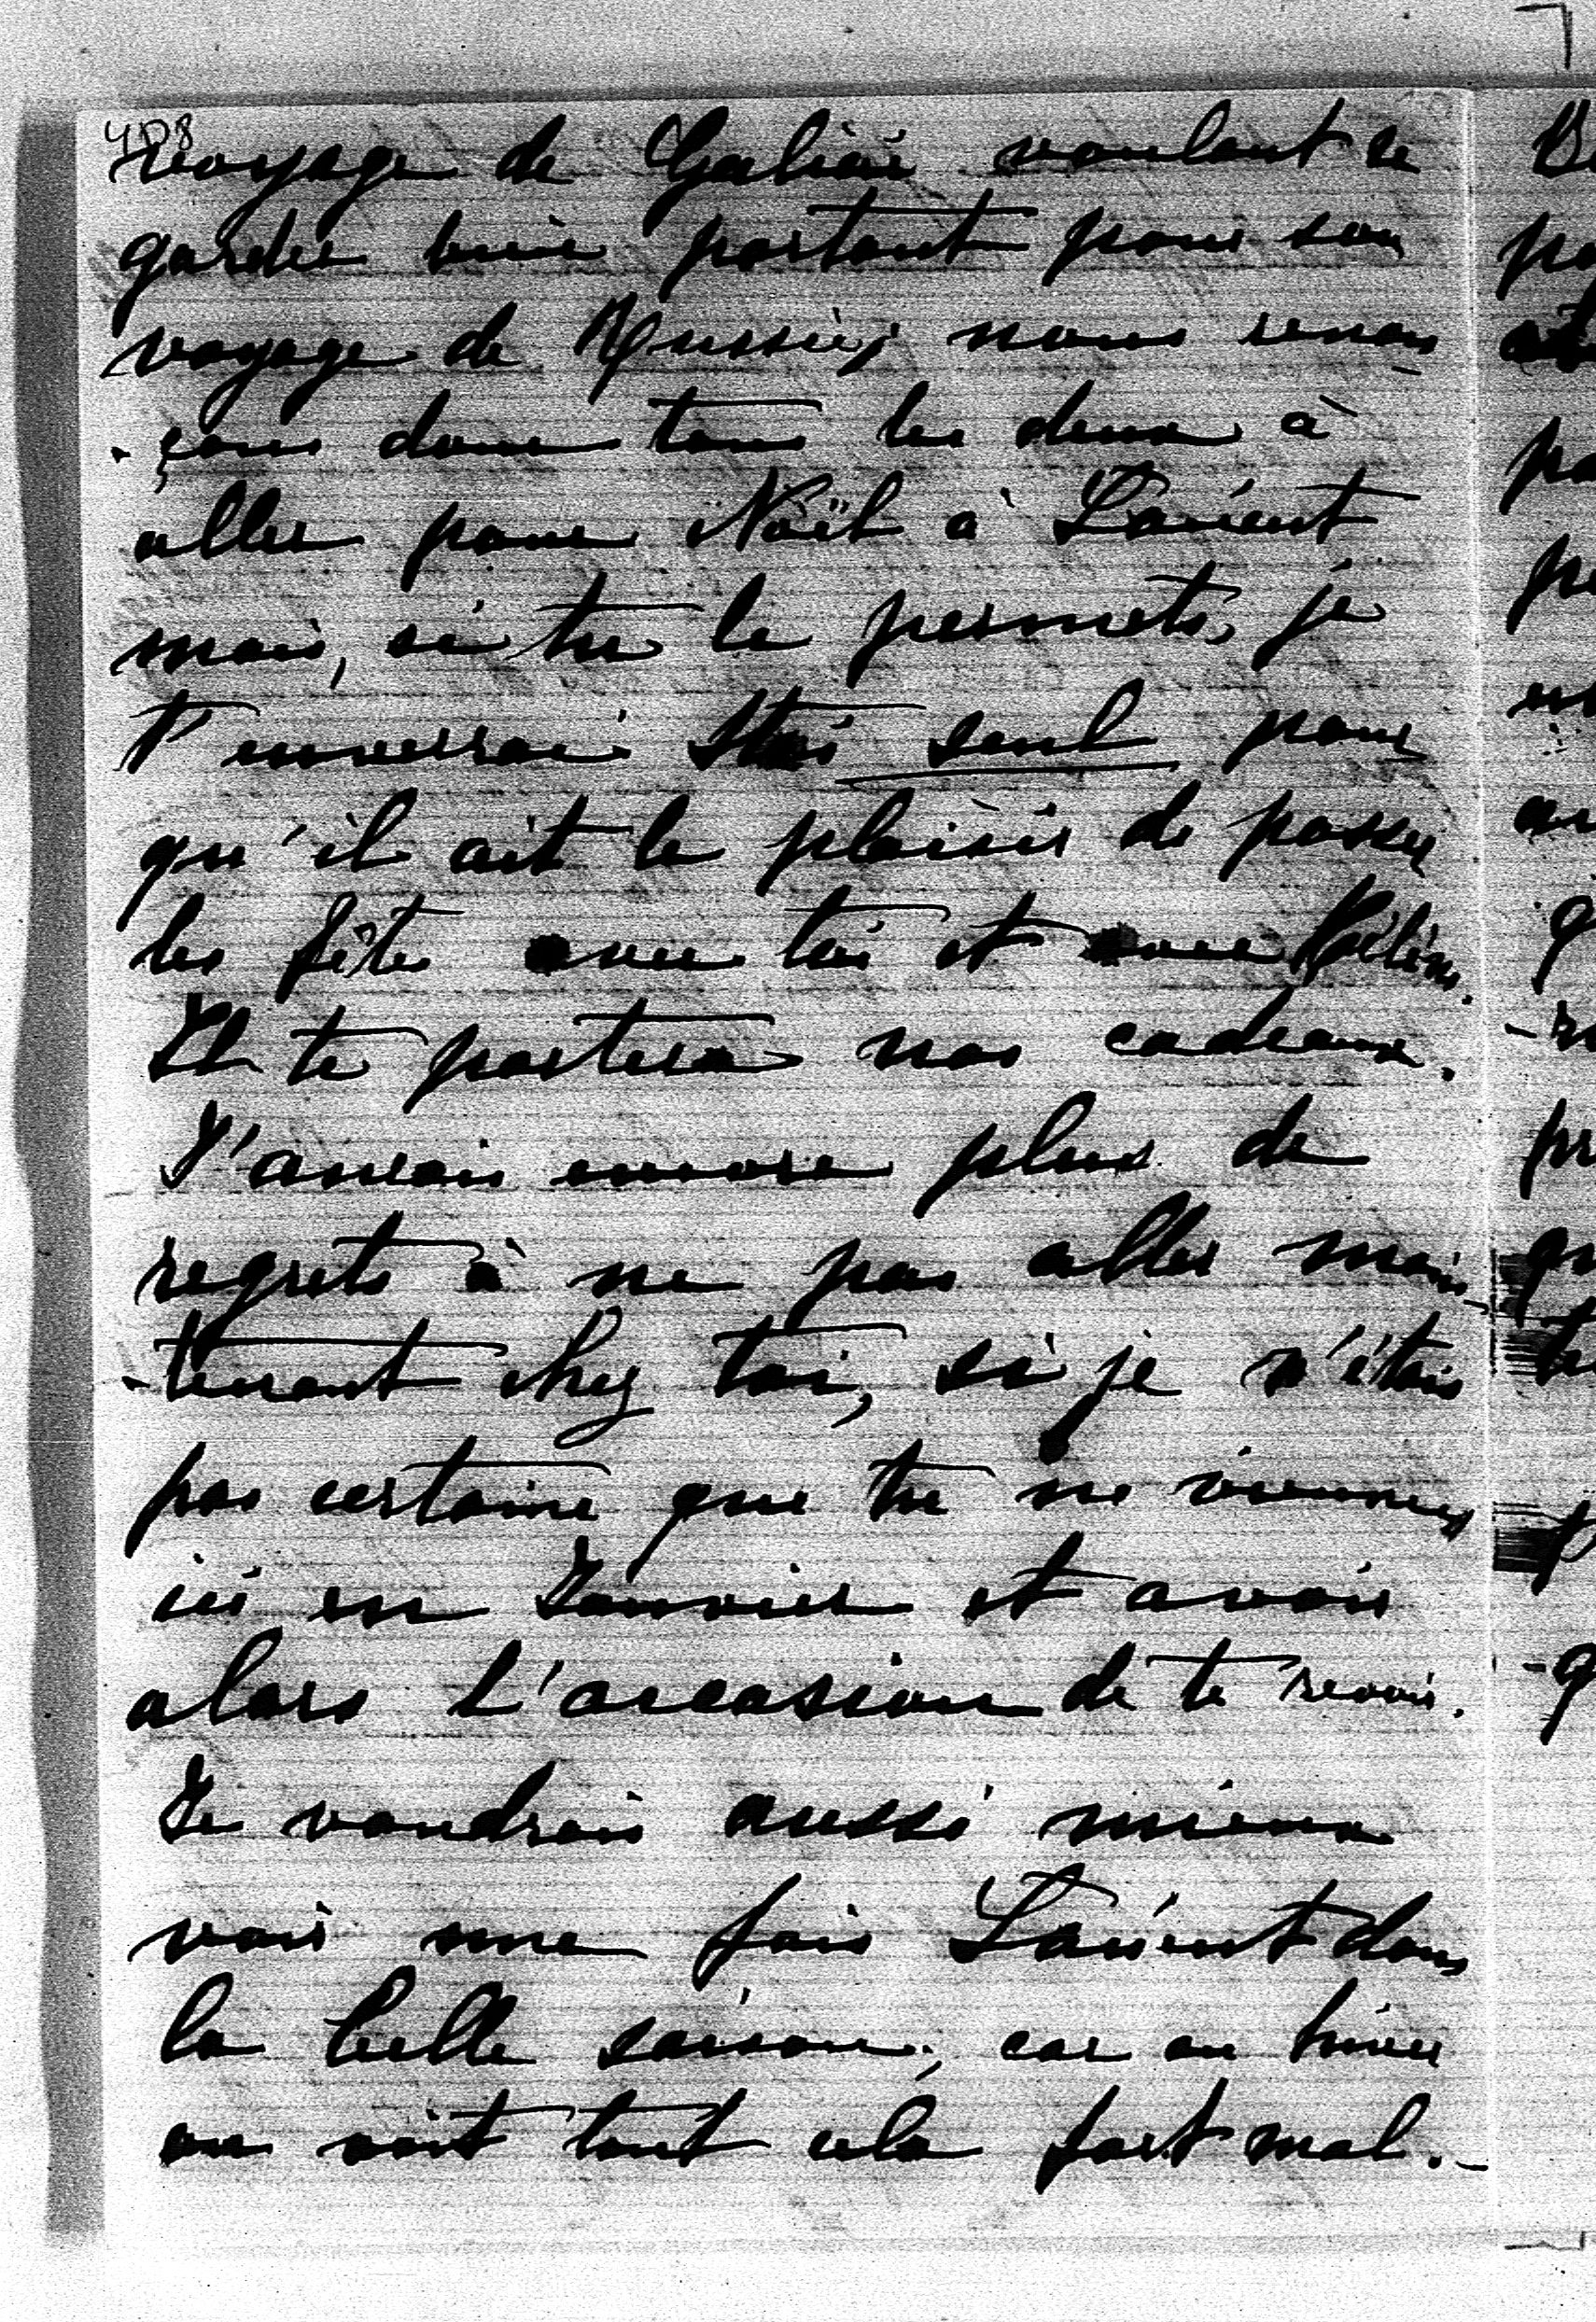 408
voyage de Galicie voulant se
garder bien portant pour son
voyage de Russie; nous renon-
-çons donc tous les deux à
aller pour Noël à Lancut
mais, si tu le permets, je
t'enverrai Stas seul pour
qu'il ait le plaisir de passer
les fêtes avec toi et avec
Il te portera nos cadeaux.
J'aurais encore plus de
regrets à ne pas aller main-
-tenant chez toi, si je n'étais
pas certaine que tu ne viennes
ici en Janvier et avoir
alors l'occasion de te revoir.
Je voudrais aussi mieux
voir une fois Lancut dans
la belle saison, car en hiver
on voit tout cela fort mal.-